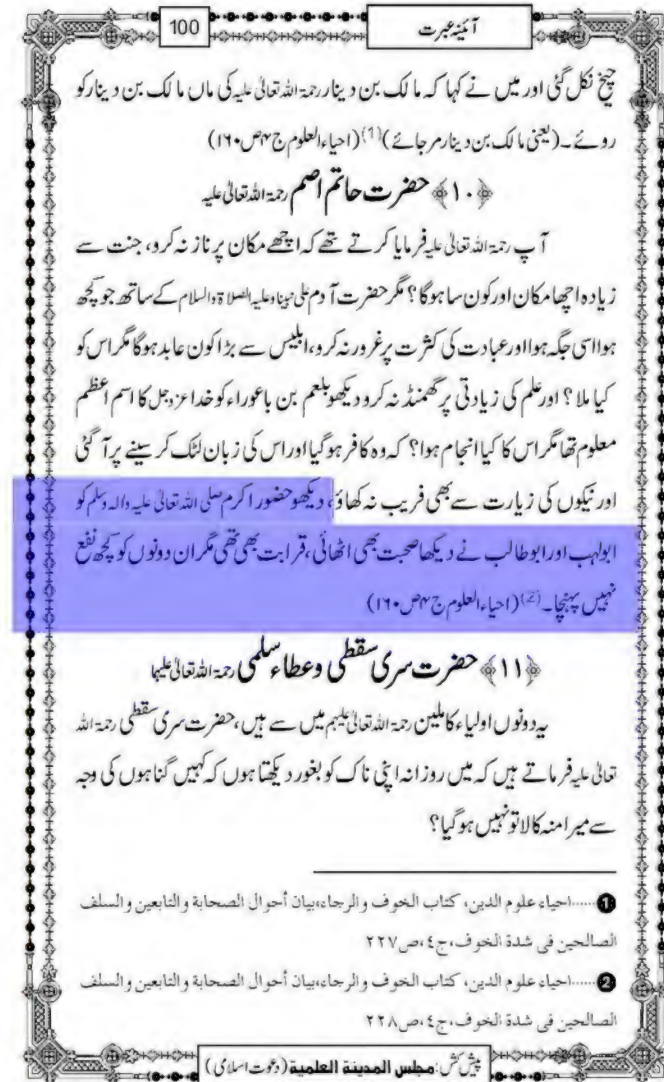 آئینۂ عبرت
100
چیخ نکل گئی اور میں نے کہا کہ مالک بن دینار رحمۃ اللہ تعالیٰ علیہ کی ماں مالک بن دینار کو
روئے۔ (یعنی مالک بن دینار مر جائے)(1) (احیاء العلوم ج۴ ص۱۶۰)
﴿۱۰﴾ حضرت حاتم اصم رحمۃ اللہ تعالیٰ علیہ
آپ رحمۃ اللہ تعالیٰ علیہ فرمایا کرتے تھے کہ اچھے مکان پر ناز نہ کرو، جنت سے
زیادہ اچھا مکان اور کون سا ہوگا؟ مگر حضرت آدم علی نبینا وعلیہ الصلاۃ والسلام کے ساتھ جو کچھ
ہوا اسی جگہ ہوا اور عبادت کی کثرت پر غرور نہ کرو، ابلیس سے بڑا کون عابد ہوگا مگر اس کو
کیا ملا؟ اور علم کی زیادتی پر گھمنڈ نہ کرو دیکھو بلعم بن باعوراء کو خدا عزوجل کا اسم اعظم
معلوم تھا مگر اس کا کیا انجام ہوا؟ کہ وہ کافر ہوگیا اور اس کی زبان لٹک کر سینے پر آ گئی
اور نیکوں کی زیارت سے بھی فریب نہ کھاؤ، دیکھو حضور اکرم صلی اللہ تعالیٰ علیہ والہ وسلم کو
ابولہب اور ابوطالب نے دیکھا صحبت بھی اٹھائی، قرابت بھی تھی مگر ان دونوں کو کچھ نفع
نہیں پہنچا۔(2) (احیاء العلوم ج۴ ص۱۶۰)
﴿۱۱﴾ حضرت سری سقطی و عطاء سلمی رحمۃ اللہ تعالیٰ علیہما
یہ دونوں اولیاء کاملین رحمۃ اللہ تعالیٰ علیہم میں سے ہیں، حضرت سری سقطی رحمۃ اللہ
تعالیٰ علیہ فرماتے ہیں کہ میں روزانہ اپنی ناک کو بغور دیکھتا ہوں کہ کہیں گناہوں کی وجہ
سے میرا منہ کالا تو نہیں ہوگیا؟
❶......احیاء علوم الدین، کتاب الخوف والرجاء، بیان أحوال الصحابة والتابعین والسلف
الصالحین فی شدة الخوف، ج٤، ص٢٢٧
❷......احیاء علوم الدین، کتاب الخوف والرجاء، بیان أحوال الصحابة والتابعین والسلف
الصالحین فی شدة الخوف، ج٤، ص٢٢٨
پیش کش: مجلس المدینة العلمیة (دعوت اسلامی)